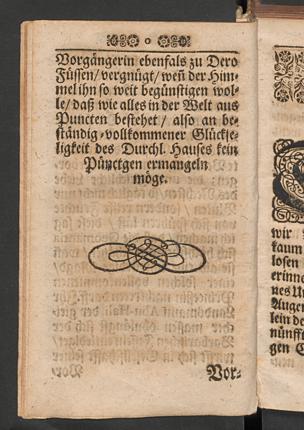 Vorgängerin ebenfals zu Dero
Füssen/ vergnügt/ weñ der Him-
mel ihn so weit begünstigen wol-
le/ daß wie alles in der Welt aus
Puncten bestehet/ also an be-
ständig-vollkommener Glückse-
ligkeit des Durchl. Hauses kein
Pünctgen ermangeln
möge.
Vor-
wir
kaum
losen
erinne
nes Un
Augen
lein de
nünfft
gen